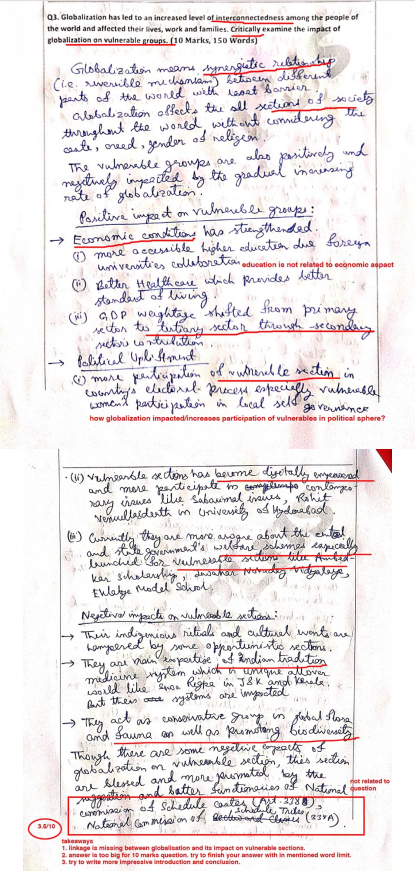 Q3. Globalization has led to an increased level of interconnectedness among the people of
the world and affected their lives, work and families. Critically examine the impact of
globalization on vulnerable groups. (10 Marks, 150 Words)
Globalization means synergistic relationship
(i.e. reversible mechanism) between different
parts of the world with least barrier.
Globalization affects the all sections of society
throughout the world without considering the
caste, creed, gender of religion.
The vulnerable groups are also positively and
negatively impected by the gradual increasing
rate of globalization.
Positive impact on vulnerable groups:
→ Economic conditions has strengthended.
(i) more accessible higher education due foreign
universities collaboration education is not related to economic aspact
(ii) Better Healthcare which provides better
standard of living.
(iii) GDP weightage shifted from primary
sector to tertiary sector through secondary
sector contribution.
→ Political Upliftment
(i) more participation of vulnerable section in
country's electoral process especially vulnerable
women participation in local self governance
how globalization impacted/increases participation of vulnerables in political sphere?
(ii) Vulnerable sections has become digitally empowered
and more participate in contempo-
rary issues like Sabarimal issues, Rohit
Vemulla death in University of Hyderabad.
(iii) Currently they are more aware about the central
and state government's welfare schemes especially
launched for vulnerable sections like Ambed-
kar Scholarship, Jwahar Navoday Vidyalaya,
Eklavya Model School.
Negative impacts on vulnerable sections:
→ Their indigenious rituals and cultural events are
hampered by some opportunistic sections.
→ They are main expertise of Indian tradition
medicine system which is unique allover
world like Sowa Rigpa in J&K and Kerala.
But their systems are impected
→ They act as conservative group in global flora
and fauna as well as promoting biodiversity
Though there are some negetive impacts of
globalization on vulnerable section, this section
are blessed and more promoted by the
suggestion and better functionaries of National
not related to
question
commission of Schedule castes (Art. 338),
National Commission of Schedule Tribes (338A).
3.5/10
takeaways
1. linkage is missing between globalisation and its impact on vulnerable sections.
2. answer is too big for 10 marks question. try to finish your answer with in mentioned word limit.
3. try to write more impressive introduction and conclusion.